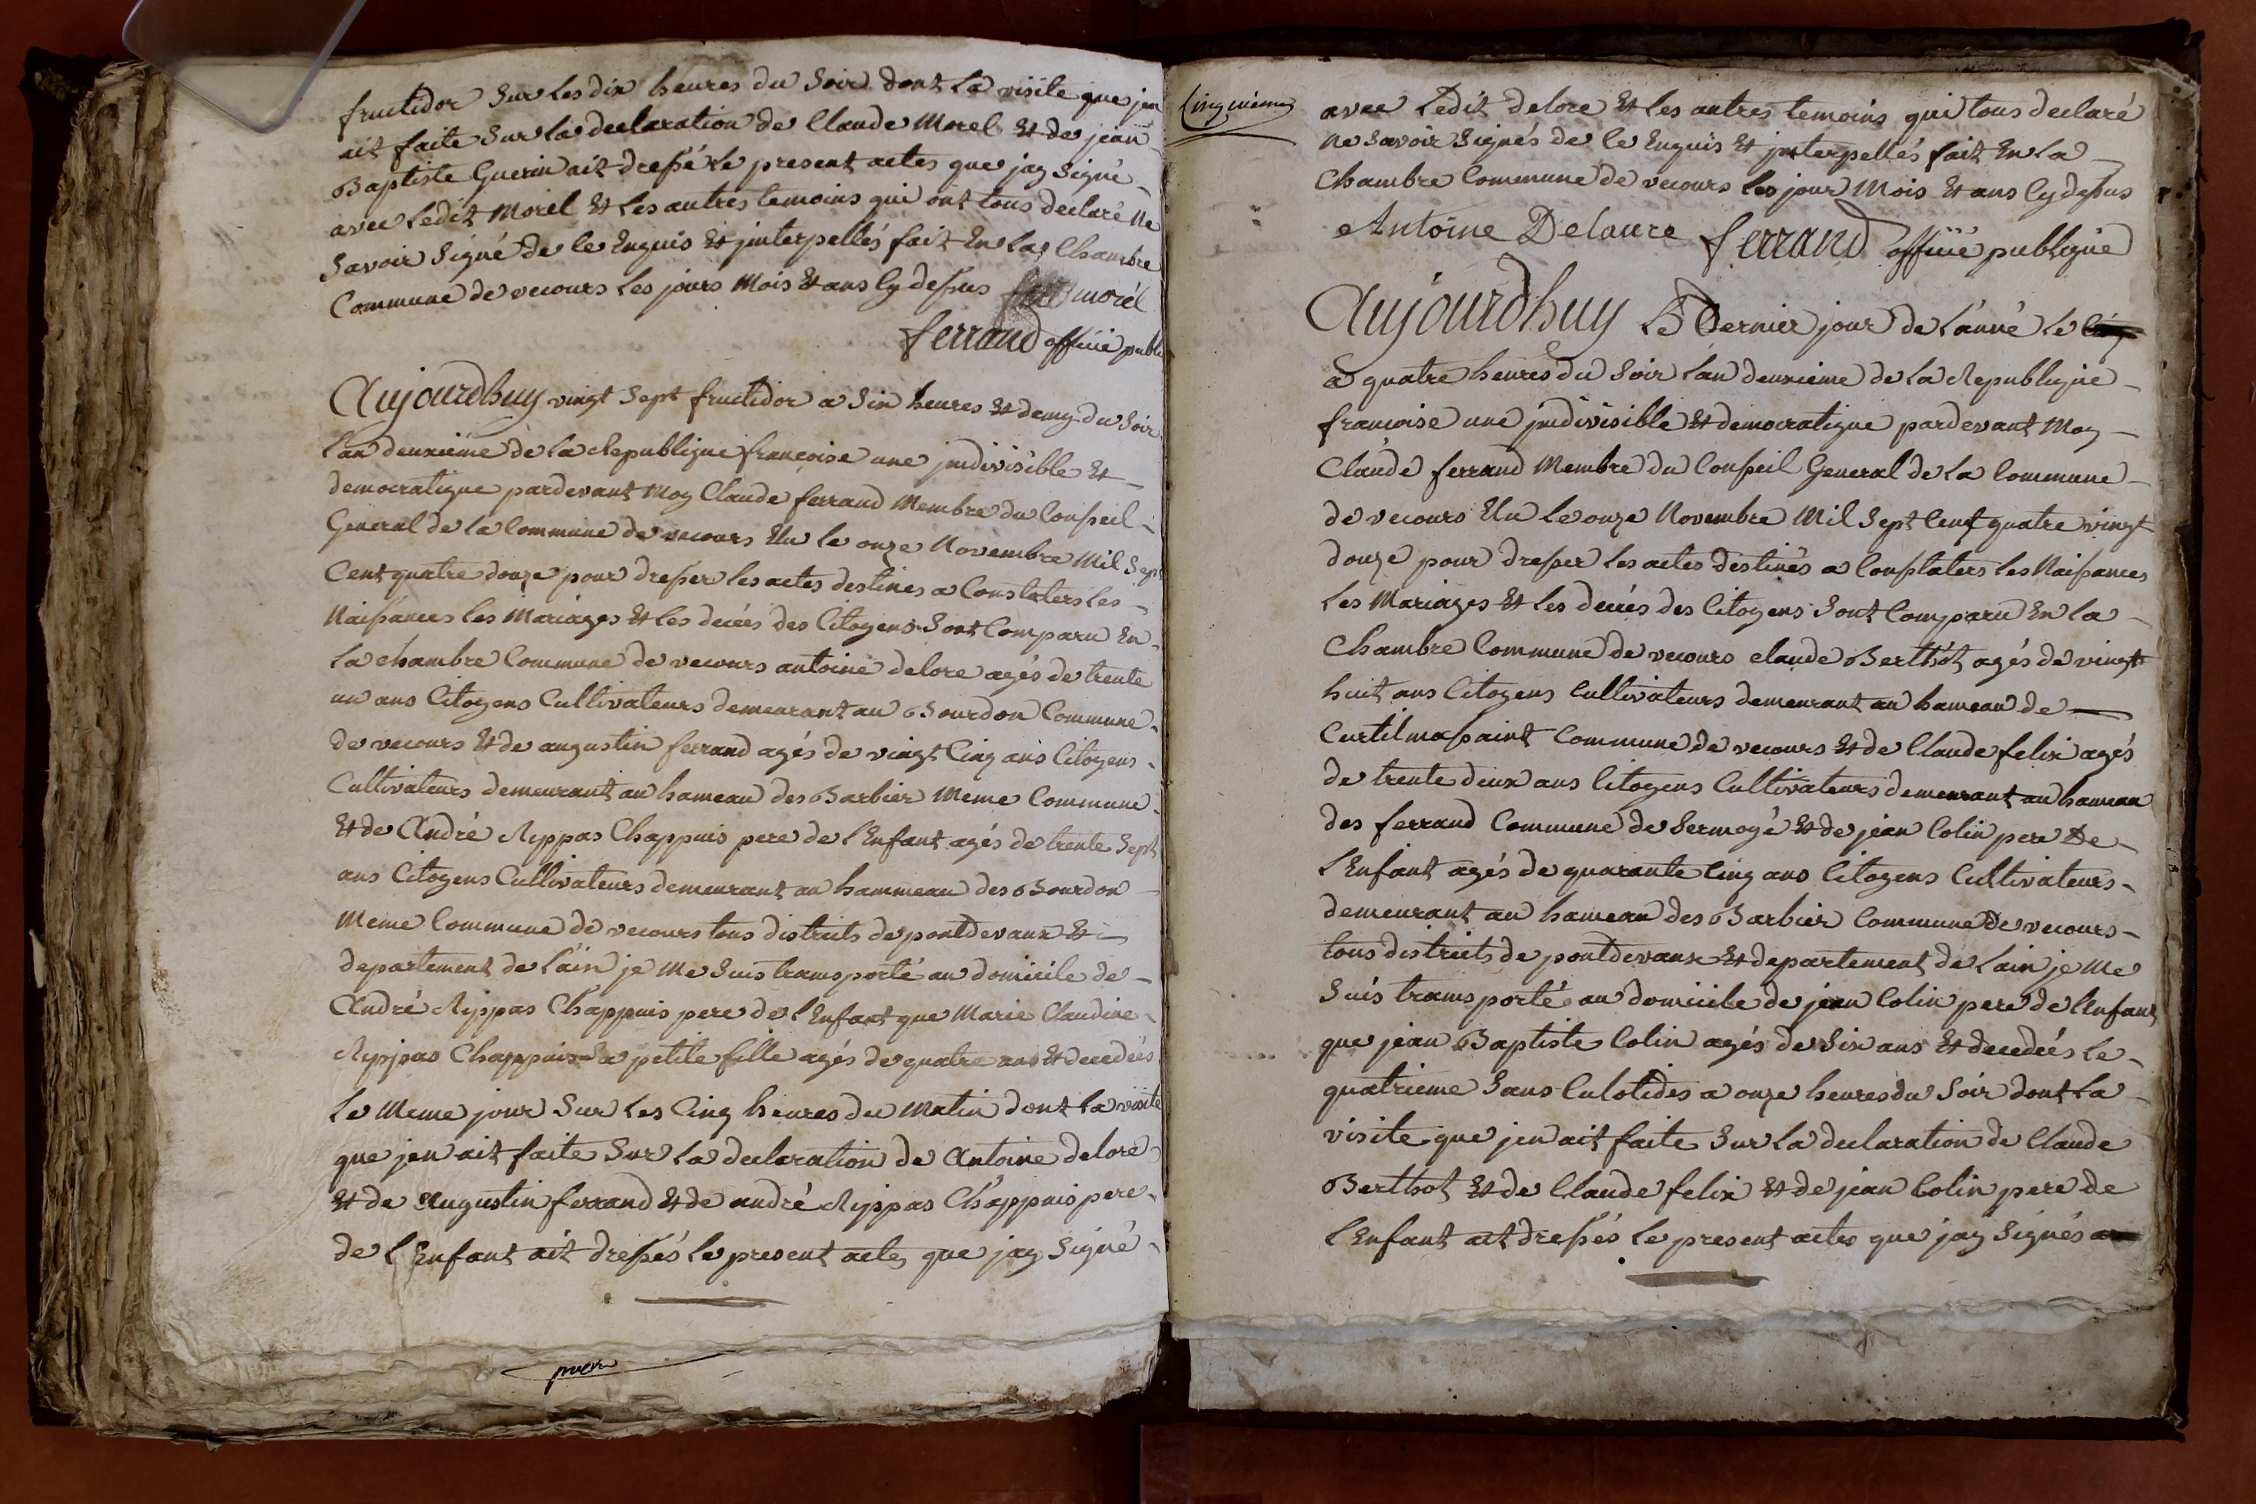 fructidor Sur les dix heures du Soir dont la visite que jen
ait faite Sur la declaration de Claude Morel Et de jean
Baptiste Guerin ait dressé le present actes que jay Signé
avec ledit Morel Et les autres temoins qui ont tous declaré Ne
Savoir Signé de le Enquis Et jnterpellés fait En la Chambre
Commune de vecours les jours Mois Et ans Cy dessus morel
ferrand officié publi
Aujourdhuy vingt Sept fructidor a Six heures Et demy du Soir
l'an deuxieme de la Republique francoise une jndivisible Et
democratique pardevant Moy Claude ferrand Membre du Conseil
General de la Commune de vecours Elu le onze Novembre Mil Sept
Cent quatre douze pour dresser les actes destines a Constaters les
Naissances les Mariages Et les decées des Citoyens Sont Comparu En
la chambre Commune de vecours antoine delore agés de trente
un ans Citoyens Cultivateurs demeurant au Bourdon Commune
de vecours Et de augustin ferrand agés de vingt Cinq ans Citoyens
Cultivateurs demeurant au hameau des Barbier Meme Commune
Et de André Ryppas Chappuis pere de l'Enfant agés de trente Sept
ans Citoyens Cultivateurs demeurant au hammeau des Bourdon
Meme Commune de vecours tous districts de pontdevaux Et
departement de l'ain je Me Suis transporté au domicile de
André Ryppas Chappuis pere de l'Enfant que Marie Claudine
Ryppas Chappuis Sa petite fille agés de quatre ans Et decedées
le Meme jour Sur les Cinq heures du Matin dont la visite
que jen ait faite Sur la declaration de Antoine delore
Et de Augustin ferrand Et de andré Ryppas Chappuis pere
de l'Enfant ait dressés le present actes que jay Signé
Cinquieme
avec ledit delore Et les autres temoins qui tous declaré
Ne Savoir Signés de le Enquis Et jnterpellés fait En la
Chambre Commune de vecours les jour Mois Et ans Cy dessus
Antoine Delaure ferrand officié publique
Aujourdhuy Le Dernier jour de l'anné le
a quatre heures du Soir l'an deuxieme de la Republique
francoise une jndivisible Et democratique pardevant Moy
Claude ferrand Membre du Conseil General de la Commune
de vecours Elu le onze Novembre Mil Sept Cent quatre vingt
douze pour dresser les actes destinés a Constaters les Naissances
les Mariages Et les decées des Citoyens Sont Comparu En la
Chambre Commune de vecours claude Berthot agés de vingt
huit ans Citoyens Cultivateurs demeurant au hameau de
Curtilmasaint Commune de vecours Et de Claude felix agés
de trente deux ans Citoyens Cultivateurs demeurant au hameau
des ferrand Commune de Sermoyé Et de jean Colin pere De
l'Enfant agés de quarante Cinq ans Citoyens Cultivateurs
demeurant au hameau des Barbier Commune De vecours
tous districts de pontdevaux Et departement de l'ain je Me
Suis transporté au domicile de jean Colin pere de l'Enfant
que jean Baptiste Colin agés de Six ans Et decedées le
quatrieme Sans Culotides a onze heures du Soir dont la
visite que jen ait faite Sur la declaration de Claude
Berthot Et de Claude felix Et de jean Colin pere de
l'Enfant ait dressés le present actes que jay Signés